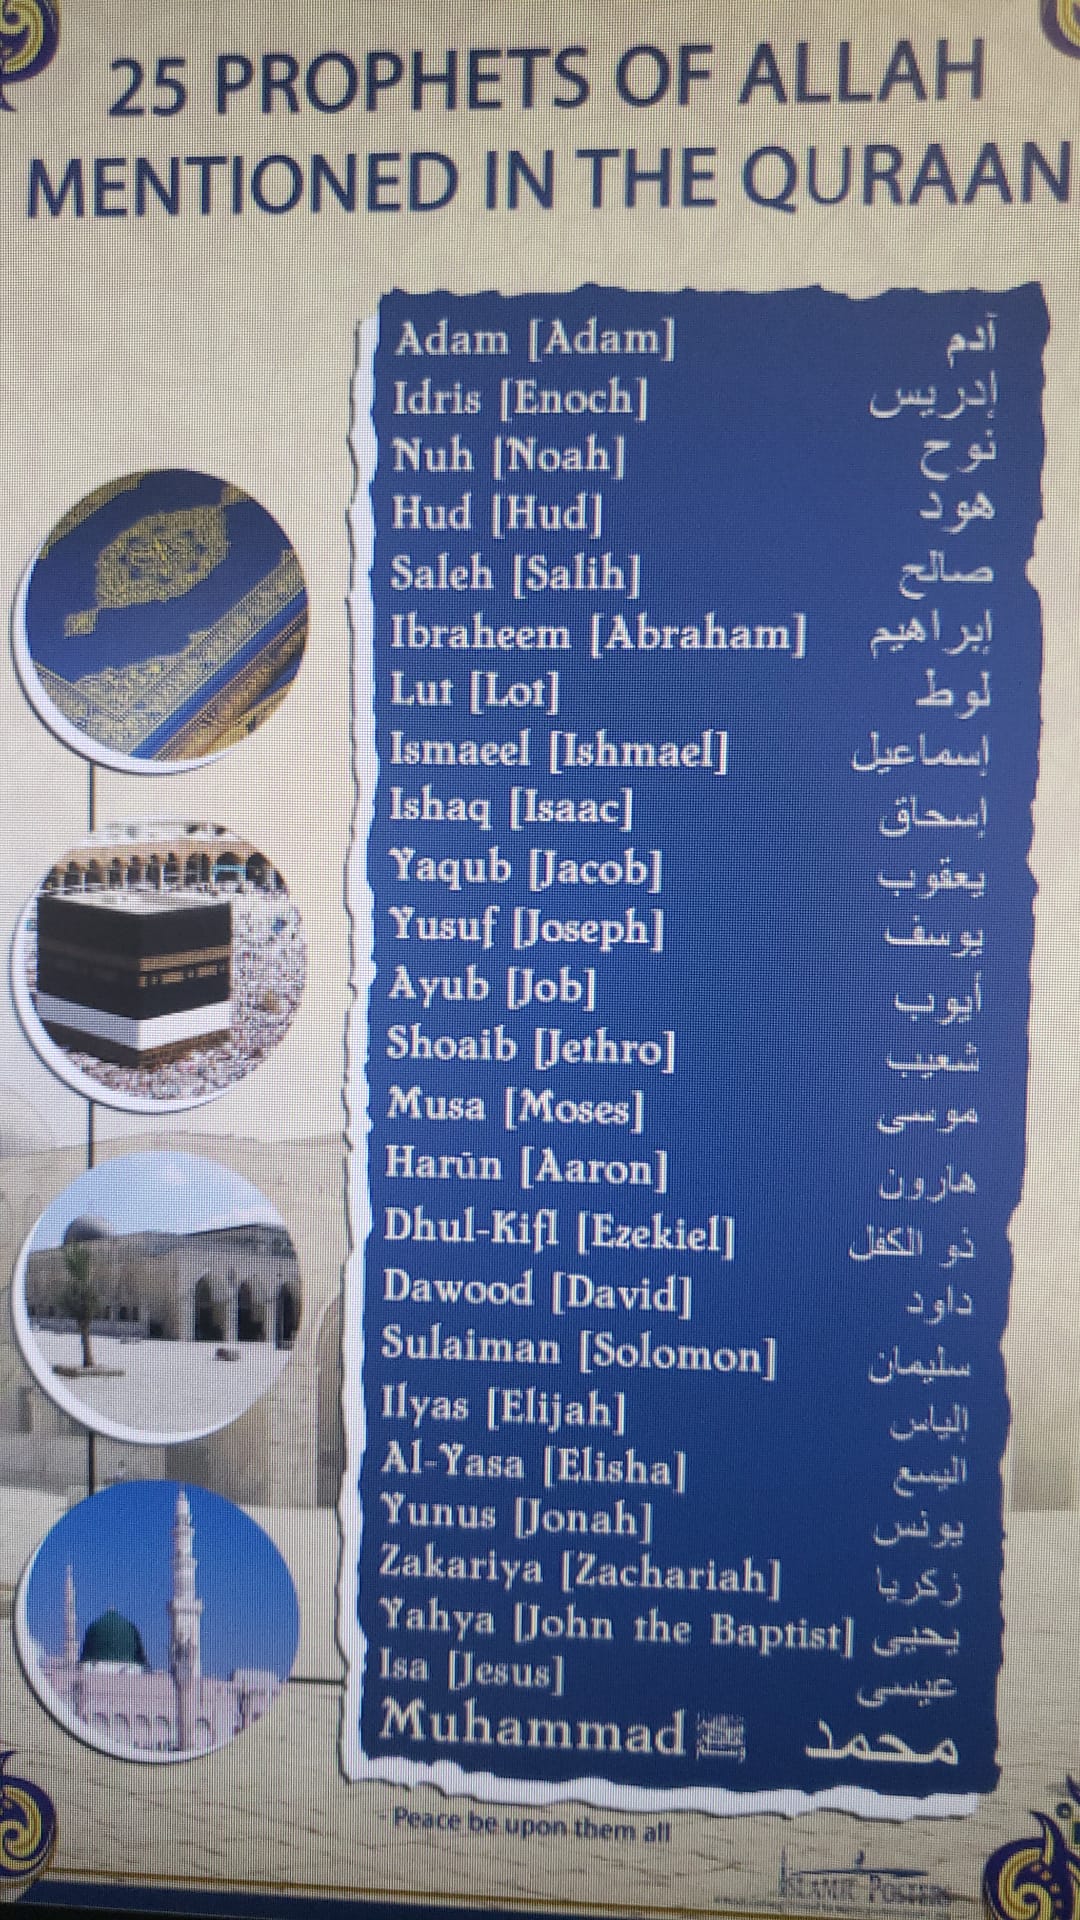 25 PROPHETS OF ALLAH
MENTIONED IN THE QURAAN
Adam [Adam] آدم
Idris [Enoch] إدريس
Nuh [Noah] نوح
Hud [Hud] هود
Saleh [Salih] صالح
Ibraheem [Abraham] إبراهيم
Lut [Lot] لوط
Ismaeel [Ishmael] إسماعيل
Ishaq [Isaac] إسحاق
Yaqub [Jacob] يعقوب
Yusuf [Joseph] يوسف
Ayub [Job] أيوب
Shoaib [Jethro] شعيب
Musa [Moses] موسى
Harūn [Aaron] هارون
Dhul-Kifl [Ezekiel] ذو الكفل
Dawood [David] داود
Sulaiman [Solomon] سليمان
Ilyas [Elijah] إلياس
Al-Yasa [Elisha] اليسع
Yunus [Jonah] يونس
Zakariya [Zachariah] زكريا
Yahya [John the Baptist] يحيى
Isa [Jesus] عيسى
Muhammad ﷺ محمد
- Peace be upon them all
ISLAMIC POSTERS